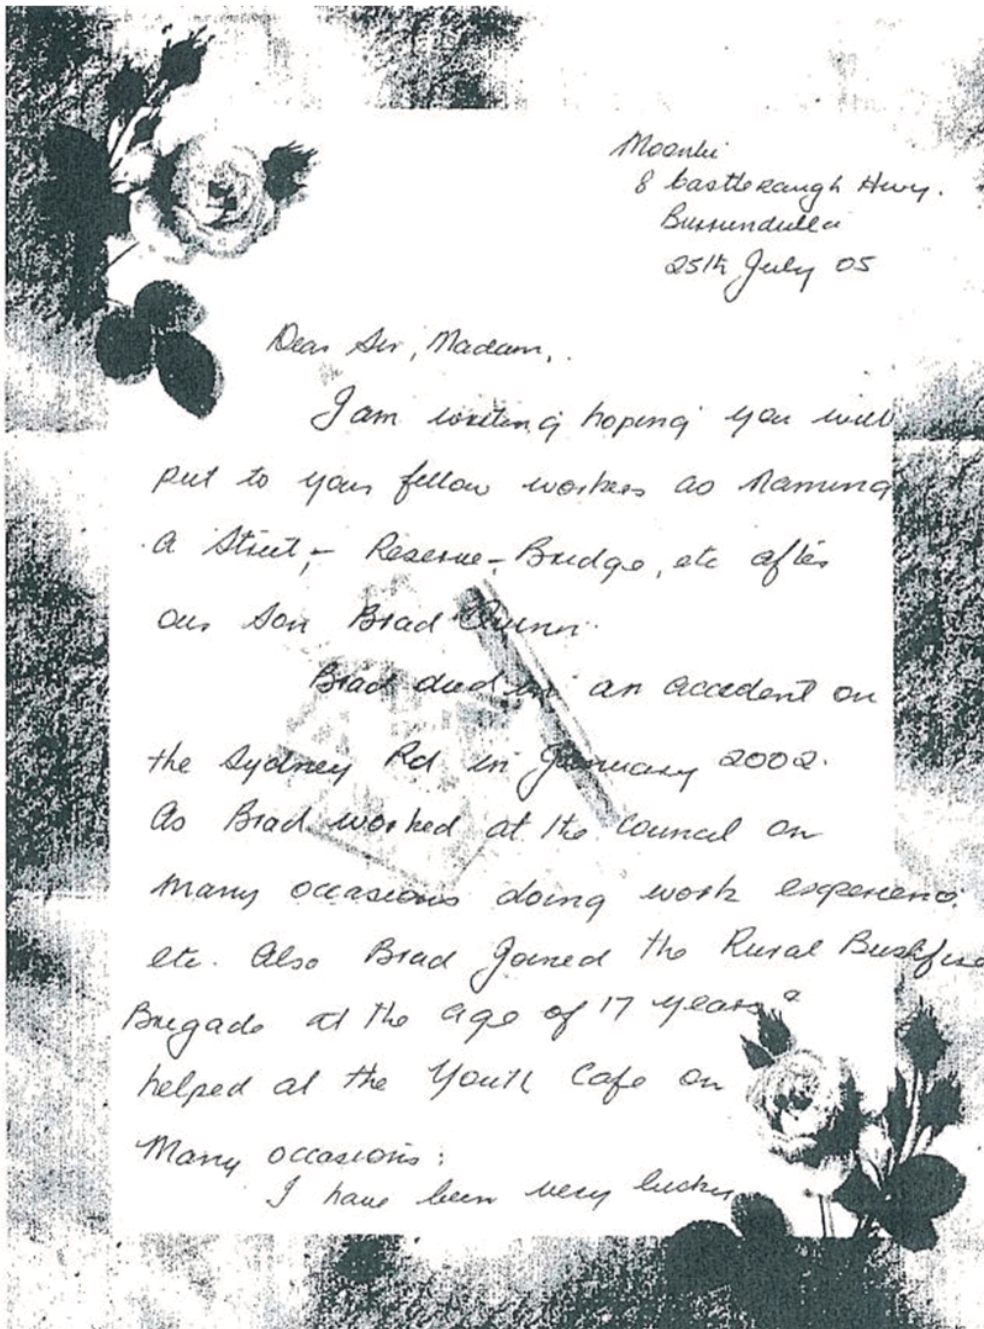 8 Castlereagh Hwy.
Burrundulla
25th July 05
Dear Sir, Madam,.
I am writing hoping you will
put to your fellow workers as naming
a Street,- Reserve-Bridge, etc after
our Son Brad Quinn.
Brad died in an accident on
the Sydney Rd in January 2002.
As Brad worked at the Council on
Many occasions doing work experienc.
etc. Also Brad Joined the Rural Bushfire
Brigade at the age of 17 years &
helped at the Youth Cafe on
Many occasions:
I have been very lucky